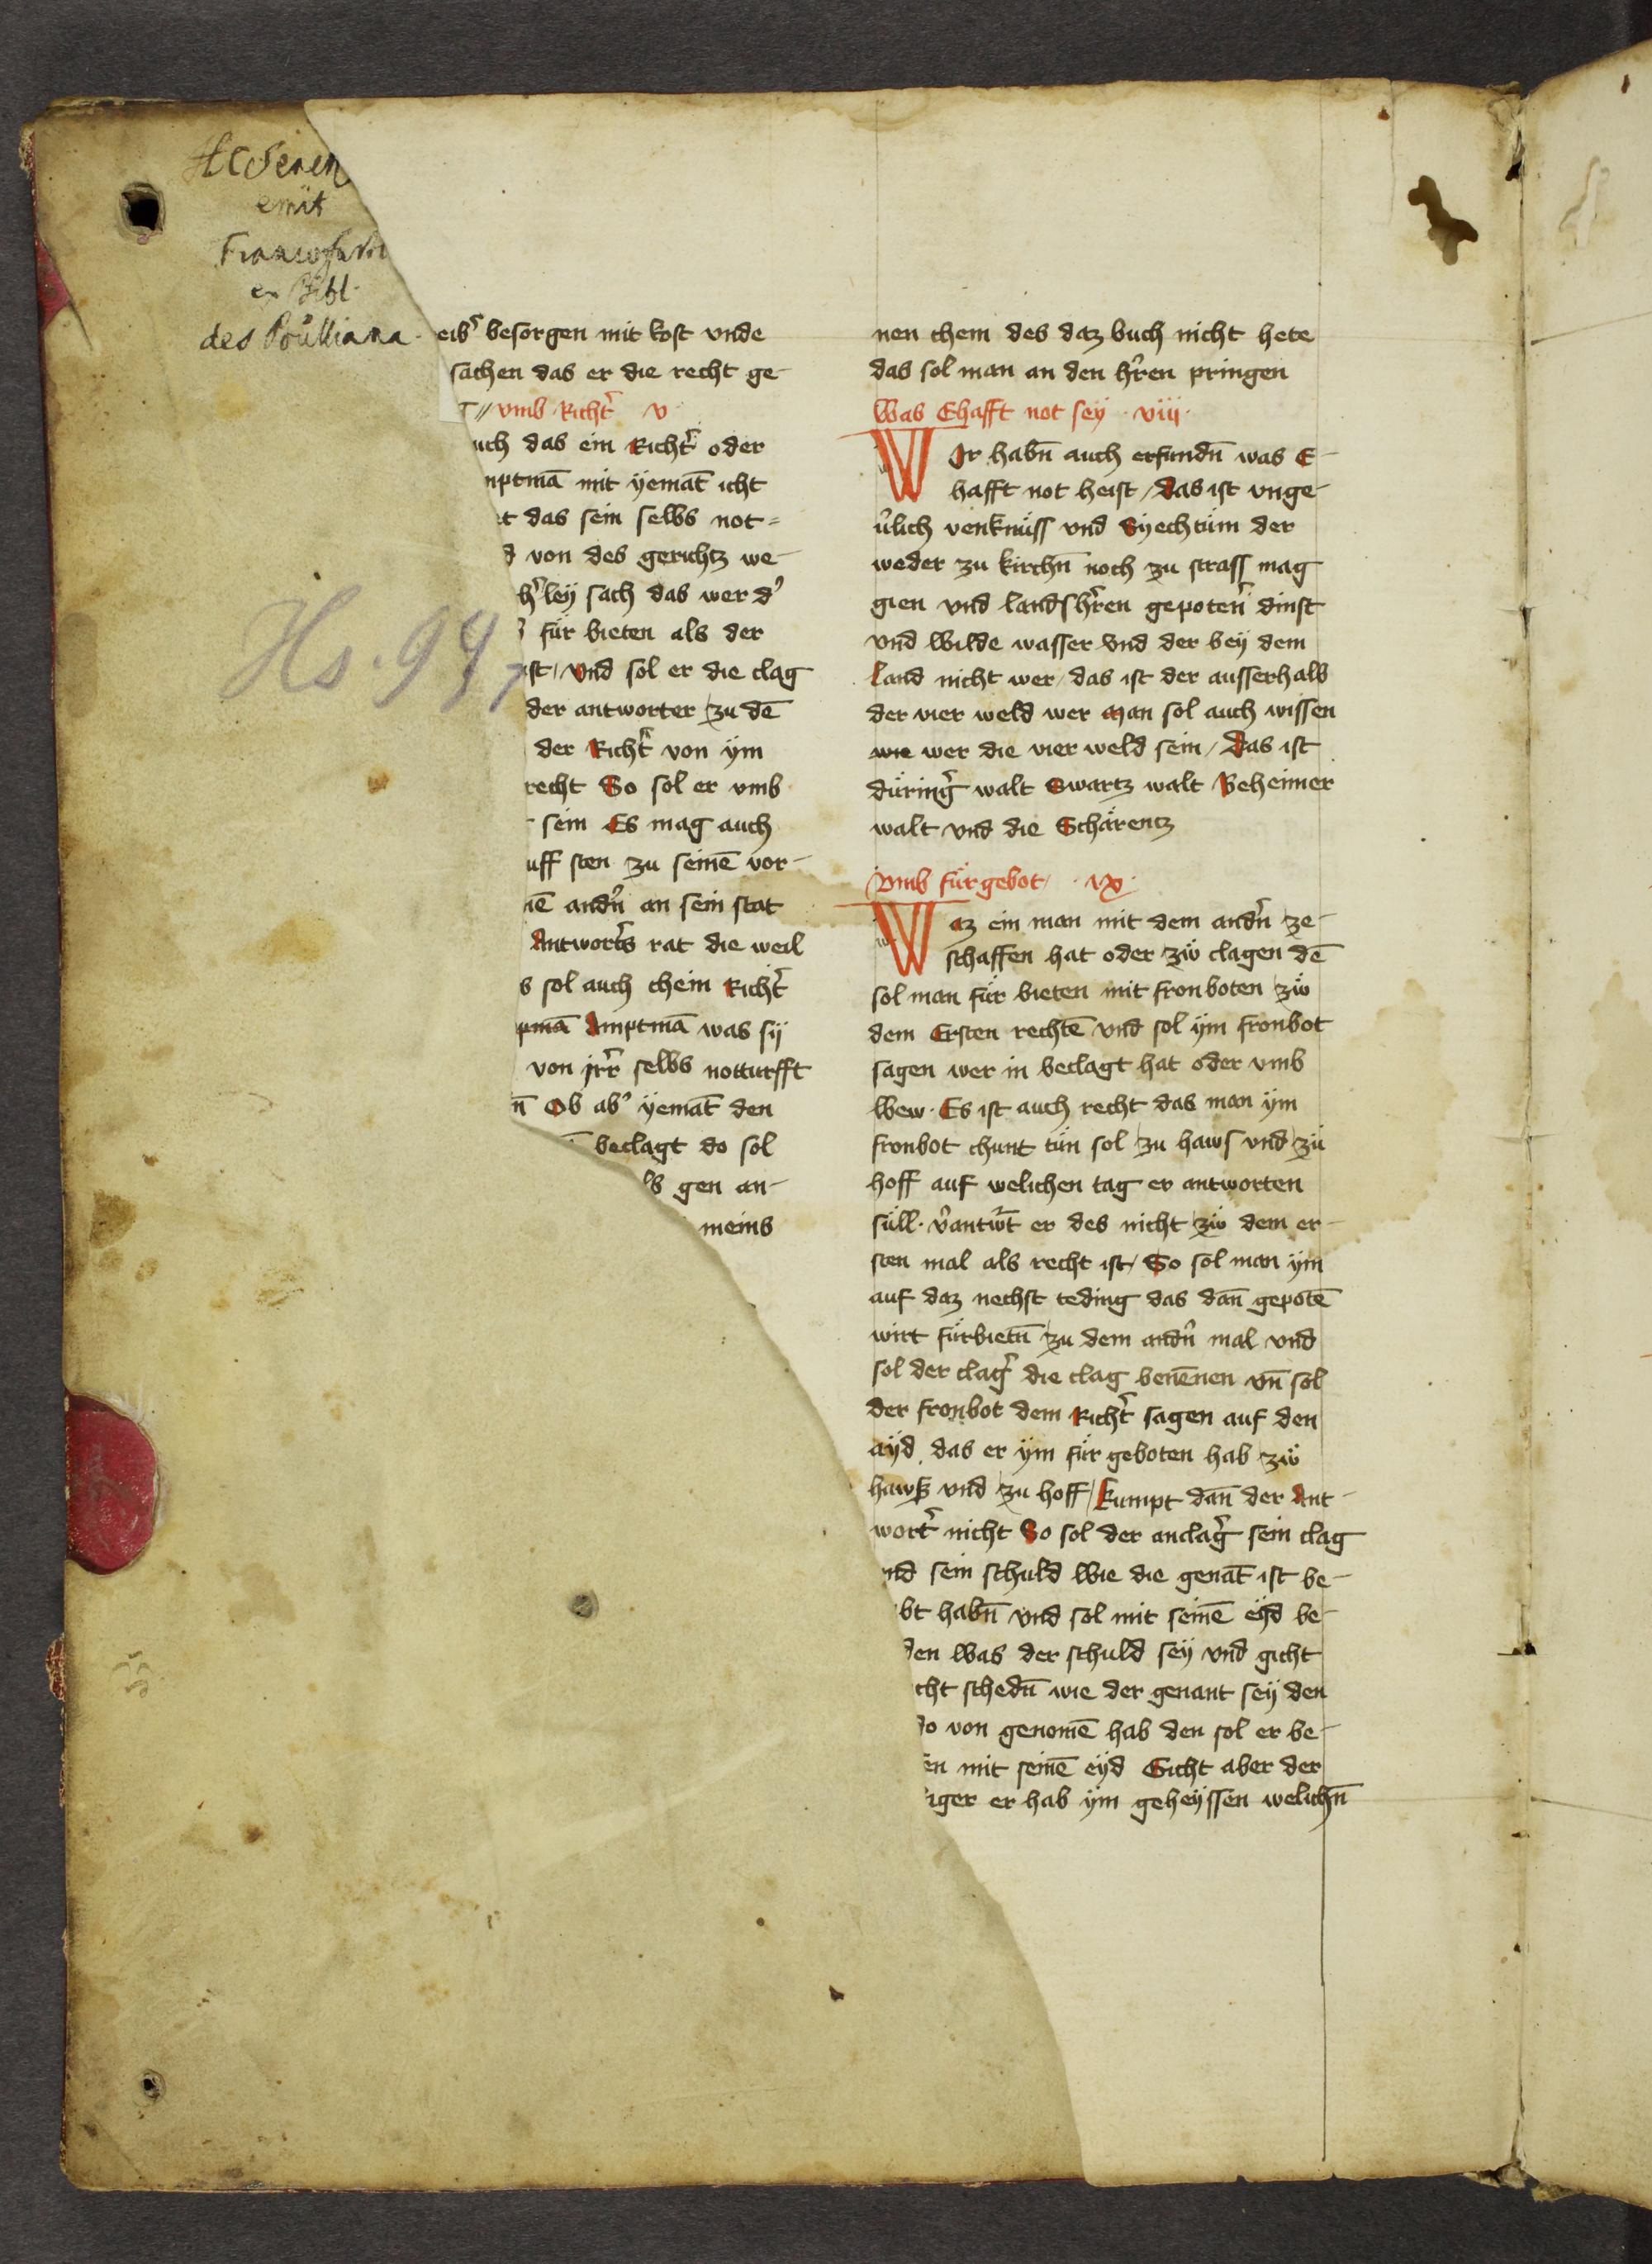 emit
ex Bibl.
des Poulliana.
Hs. 947
eibˀ besorgen mit kost vnde
sachen das er die recht ge-
vmb Richtˀ v
uch das ein Richtˀ oder
mptmā mit yemāt icht
et das sein selbs not-
d von des gerichtz we-
hˀley sach das wer dˀ
für bieten als der
ist / vnd sol er die clag
der antworter zu dē
der Richtˀ von ÿm
recht So sol er vmb
sein Es mag auch
uff sten zu seinē vor-
nē andˀn an sein stat
Antwortˀs rat die weil
s sol auch chein Richtˀ
pmā Amptmā was sÿ
von irˀr selbs notturfft
n̄ Ob abˀ yemāt den
beclagt do sol
ls gen an-
meins
nen chem des daz buch nicht hete
das sol man an den hˀren pringen
Was Ehafft not seÿ · viij ·
WIr habn̄ auch erfundn̄ was E-
hafft not heist / das ist vnge-
uˀlich venknüss vnd Syechtüm der
weder zu kirchn̄ noch zu strass mag
gien vnd landshˀren gepotenˀ dinst
vnd wilde wasser vnd der beÿ dem
land nicht wer / das ist der ausserhalb
der vier weld wer Man sol auch wissen
wie wer die vier weld sein / das ist
düringˀ walt Swartz walt Beheimer
walt vnd die Schärentz
vmb fürgebot / · ix ·
Waz ein man mit dem andˀn ze-
schaffen hat oder zw̎ clagen dē
sol man für bieten mit fronboten zw̎
dem Ersten rechtē vnd sol ÿm fronbot
sagen wer in beclagt hat oder vmb
wew · Es ist auch recht das man ÿm
fronbot chunt tün sol zu haws vnd zü
hoff auf welichen tag er antworten
süll · vˀantwˀt er des nicht zw̎ dem er-
sten mal als recht ist / So sol man ÿm
auf daz nechst teding das dan̄ gepotē
wirt fürbietn̄ zu dem andˀn mal vnd
sol der clagˀ die clag benēnen vn̄ sol
der fronbot dem Richtˀ sagen auf den
aÿd das er ÿm für geboten hab zw̎
hawß vnd zu hoff / kumpt dan̄ der Ant-
wortˀ nicht So sol der anclagˀ sein clag
nd sein schuld wie die genāt ist be-
bt habn̄ vnd sol mit seinē eÿd be-
den was der schuld seÿ vnd gicht
cht schedn̄ wie der genant seÿ den
do von genomē hab den sol er be-
en mit seinē eÿd Gicht aber der
iger er hab ÿm geheÿssen welichn̄